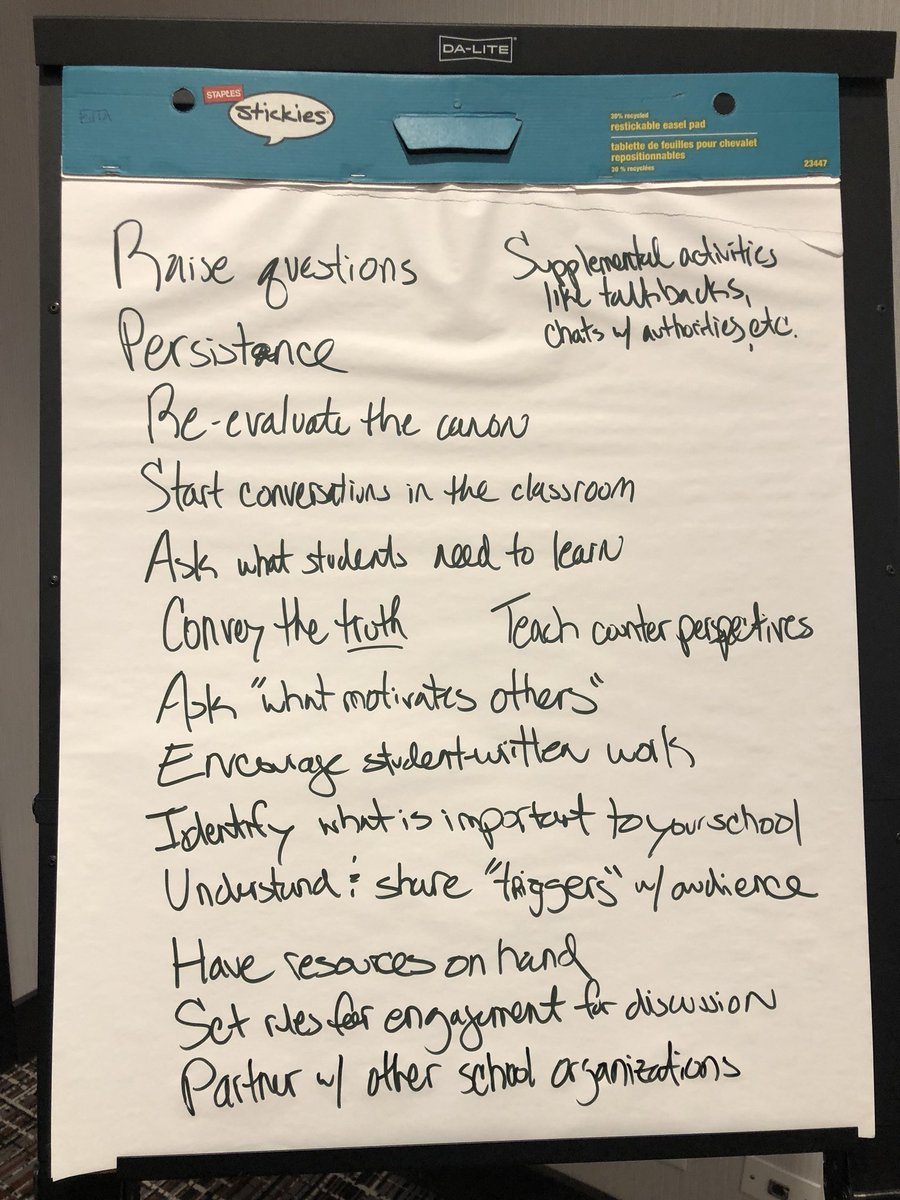 DA-LITE
STAPLES
stickies
30% recycled
restickable easel pad
tablette de feuilles pour chevalet
repositionnables
30 % recyclées
23447
Raise questions
Supplemental activities
like talkbacks,
chats w/ authorities, etc.
Persistance
Re-evaluate the canon
Start conversations in the classroom
Ask what students need to learn
Convey the truth
Teach counter perspectives
Ask "what motivates others"
Encourage student-written work
Identify what is important to your school
Understand & share "triggers" w/ audience
Have resources on hand
Set rules for engagement for discussion
Partner w/ other school organizations